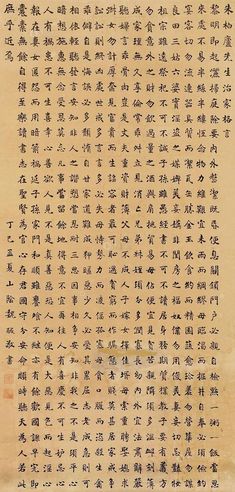 朱柏廬先生治家格言
黎明即起灑掃庭除要內外整潔既昏便息關鎖門戶必親自檢點一粥一飯當思
來處不易半絲半縷恆念物力維艱宜未雨而綢繆毋臨渴而掘井自奉必須儉約宴客
切勿流連器具質而潔瓦缶勝金玉飲食約而精園蔬愈珍饈勿營華屋勿謀
良田三姑六婆實淫盜之媒婢美妾嬌非閨房之福奴僕勿用俊美妻妾切忌艷妝
祖宗雖遠祭祀不可不誠子孫雖愚經書不可不讀居身務期質樸教子要有義方
勿貪意外之財勿飲過量之酒與肩挑貿易毋佔便宜見貧苦親鄰須多溫恤刻薄
成家理無久享倫常乖舛立見消亡兄弟叔姪須多分潤寡長幼內外宜法肅辭嚴
聽婦言乖骨肉豈是丈夫重資財薄父母不成人子嫁女擇佳婿毋索重聘娶媳求
淑女勿計厚奩見富貴而生諂容者最可恥遇貧窮而作驕態者賤莫甚居家戒爭
訟訟則終凶處世戒多言言多必失毋恃勢力而凌逼孤寡勿貪口腹而恣殺牲禽
乖僻自是悔誤必多頹惰自甘家道難成狎暱惡少久必受其累屈志老成急則可
相依輕聽發言安知非人之譖愬當忍耐三思因事相爭安知非我之不是須平心
暗想施惠無念受恩莫忘凡事當留餘地得意不宜再往人有喜慶不可生妒忌心
人有禍患不可生喜幸心善欲人見不是真善惡恐人知便是大惡見色而起淫心
報在妻女匿怨而用暗箭禍延子孫家門和順雖饔飧不繼亦有餘歡國課早完即
囊橐無餘自得至樂讀書志在聖賢為官心存君國守分安命順時聽天為人若此
庶乎近焉
丁巳孟夏山陰魏敬書